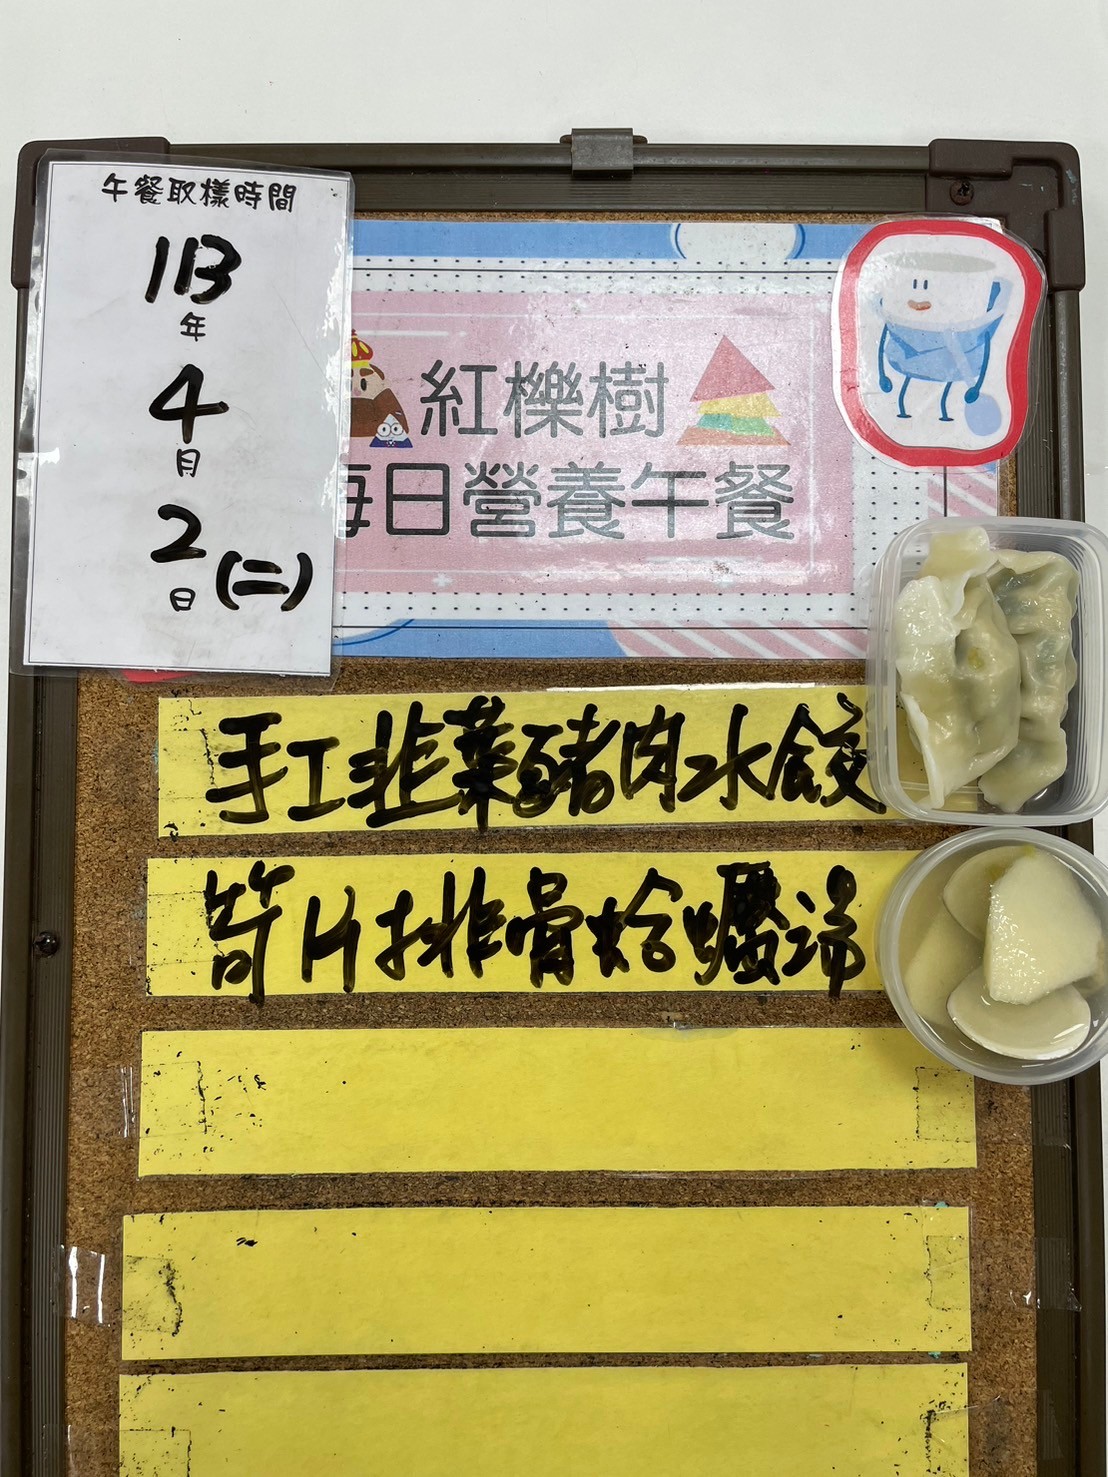 午餐取樣時間
113
年
4
月
2
日
(二)
紅櫟樹
每日營養午餐
手工韭菜豬肉水餃
筍片排骨蛤蠣湯